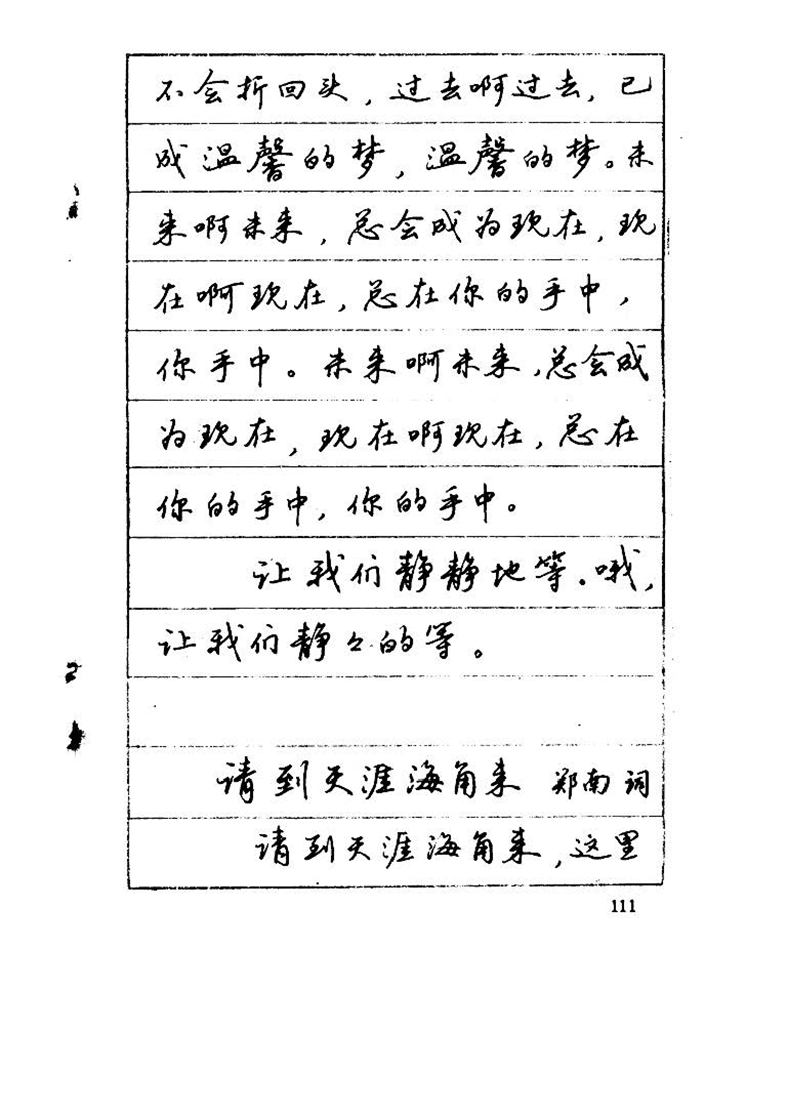 不会折回头，过去啊过去，已
成温馨的梦，温馨的梦。未
来啊未来，总会成为现在，现
在啊现在，总在你的手中，
你手中。未来啊未来，总会成
为现在，现在啊现在，总在
你的手中，你的手中。
让我们静静地等。哦，
让我们静々的等。
请到天涯海角来 郑南词
请到天涯海角来，这里
111